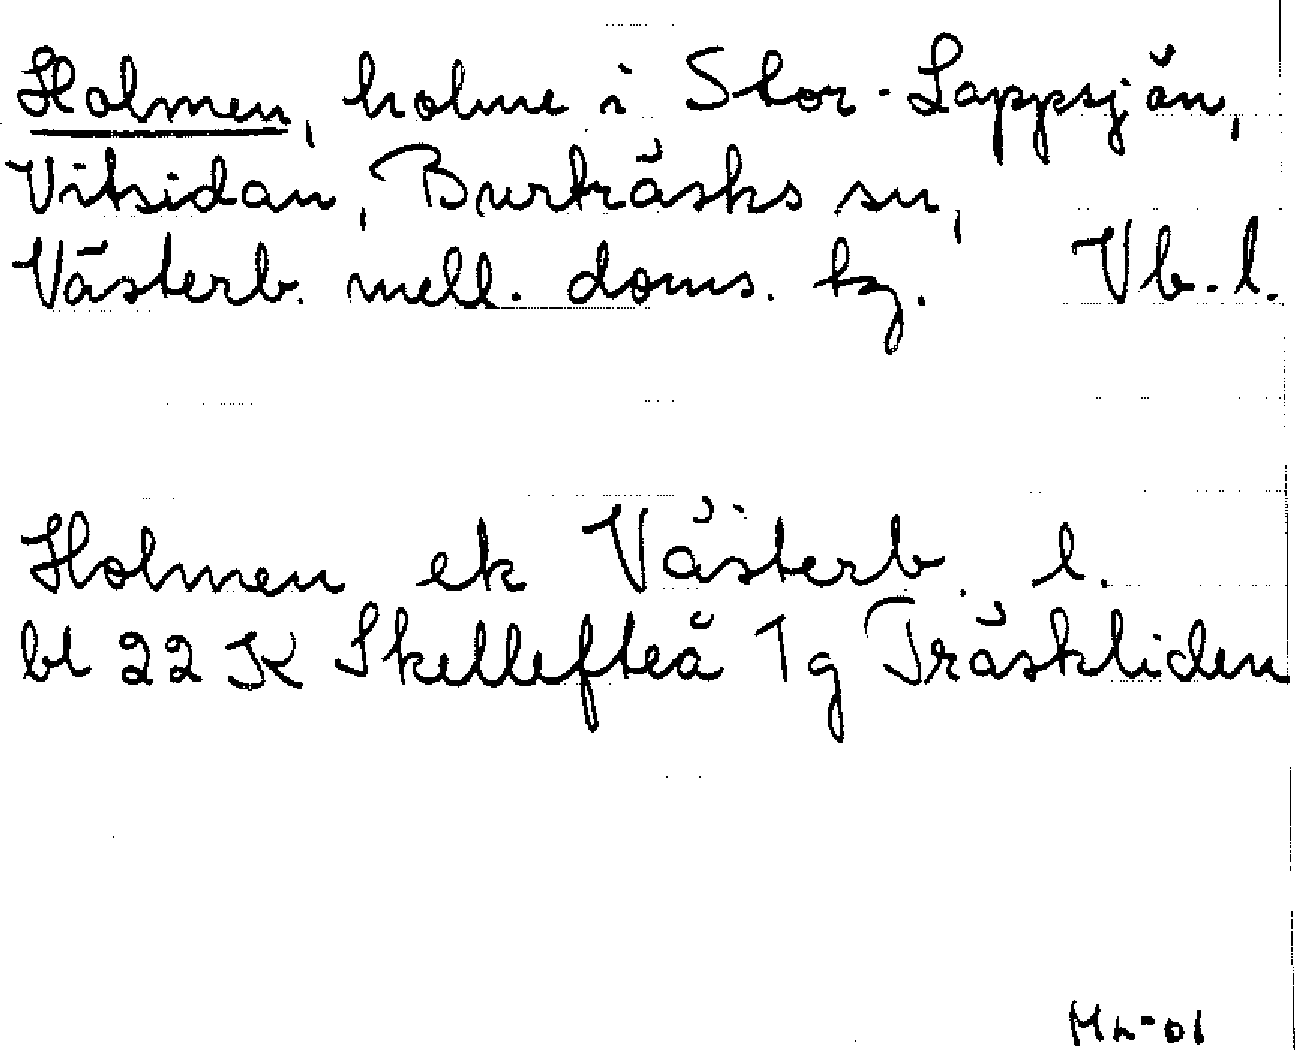 Holmen, holme i Stor-Lappsjön,
Vitsidan, Burträsks sn,
Västerb. mell. doms. tg. Vb. l.
Holmen ek Västerb. l.
bl 22 K Skellefteå 1g Träskliden